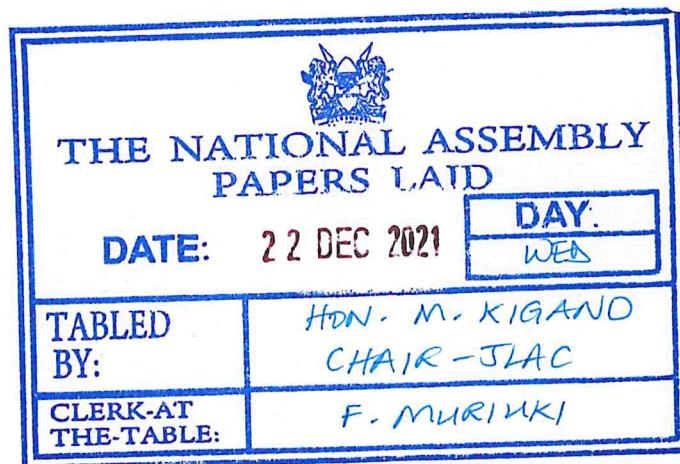 THE NATIONAL ASSEMBLY
PAPERS LAID
DATE: 22 DEC 2021
DAY.
WED
TABLED BY:
HON. M. KIGANO
CHAIR-JLAC
CLERK-AT THE-TABLE:
F. MURIUKI